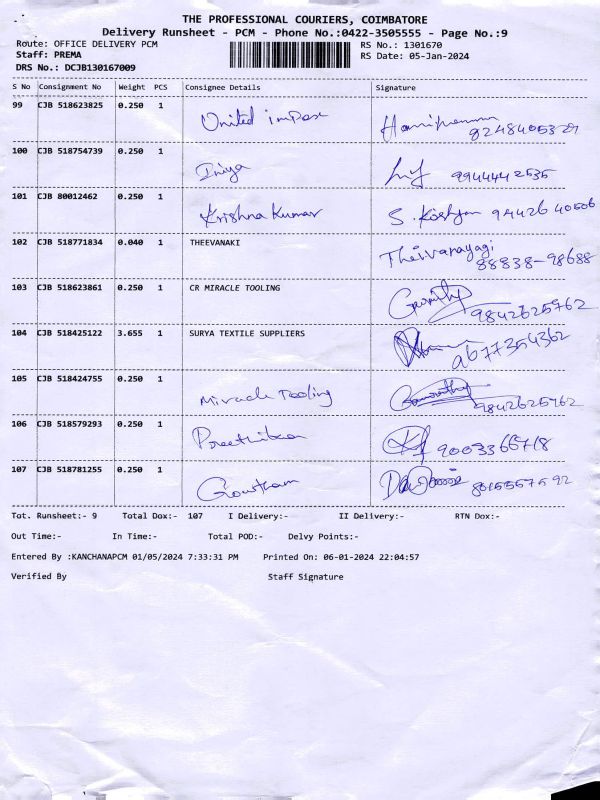 THE PROFESSIONAL COURIERS, COIMBATORE
Delivery Runsheet - PCM - Phone No.:0422-3505555 - Page No.:9
Route: OFFICE DELIVERY PCM RS No.: 1301670
Staff: PREMA RS Date: 05-Jan-2024
DRS No.: DCJB130167009
S No Consignment No Weight PCS Consignee Details Signature
99 CJB 518623825 0.250 1
United impex
100 CJB 518754739 0.250 1
Iniya 9944442535
101 CJB 80012462 0.250 1
Krishna Kumar S. 9442640506
102 CJB 518771834 0.040 1 THEEVANAKI
Theivanayagi
88838-98688
103 CJB 518623861 0.250 1 CR MIRACLE TOOLING
9842625762
104 CJB 518425122 3.655 1 SURYA TEXTILE SUPPLIERS
9677354362
105 CJB 518424755 0.250 1
Miracle Tooling 9842625762
106 CJB 518579293 0.250 1
9003366718
107 CJB 518781255 0.250 1
Goutham
Tot. Runsheet:- 9 Total Dox:- 107 I Delivery:- II Delivery:- RTN Dox:-
Out Time:- In Time:- Total POD:- Delvy Points:-
Entered By :KANCHANAPCM 01/05/2024 7:33:31 PM Printed On: 06-01-2024 22:04:57
Verified By Staff Signature